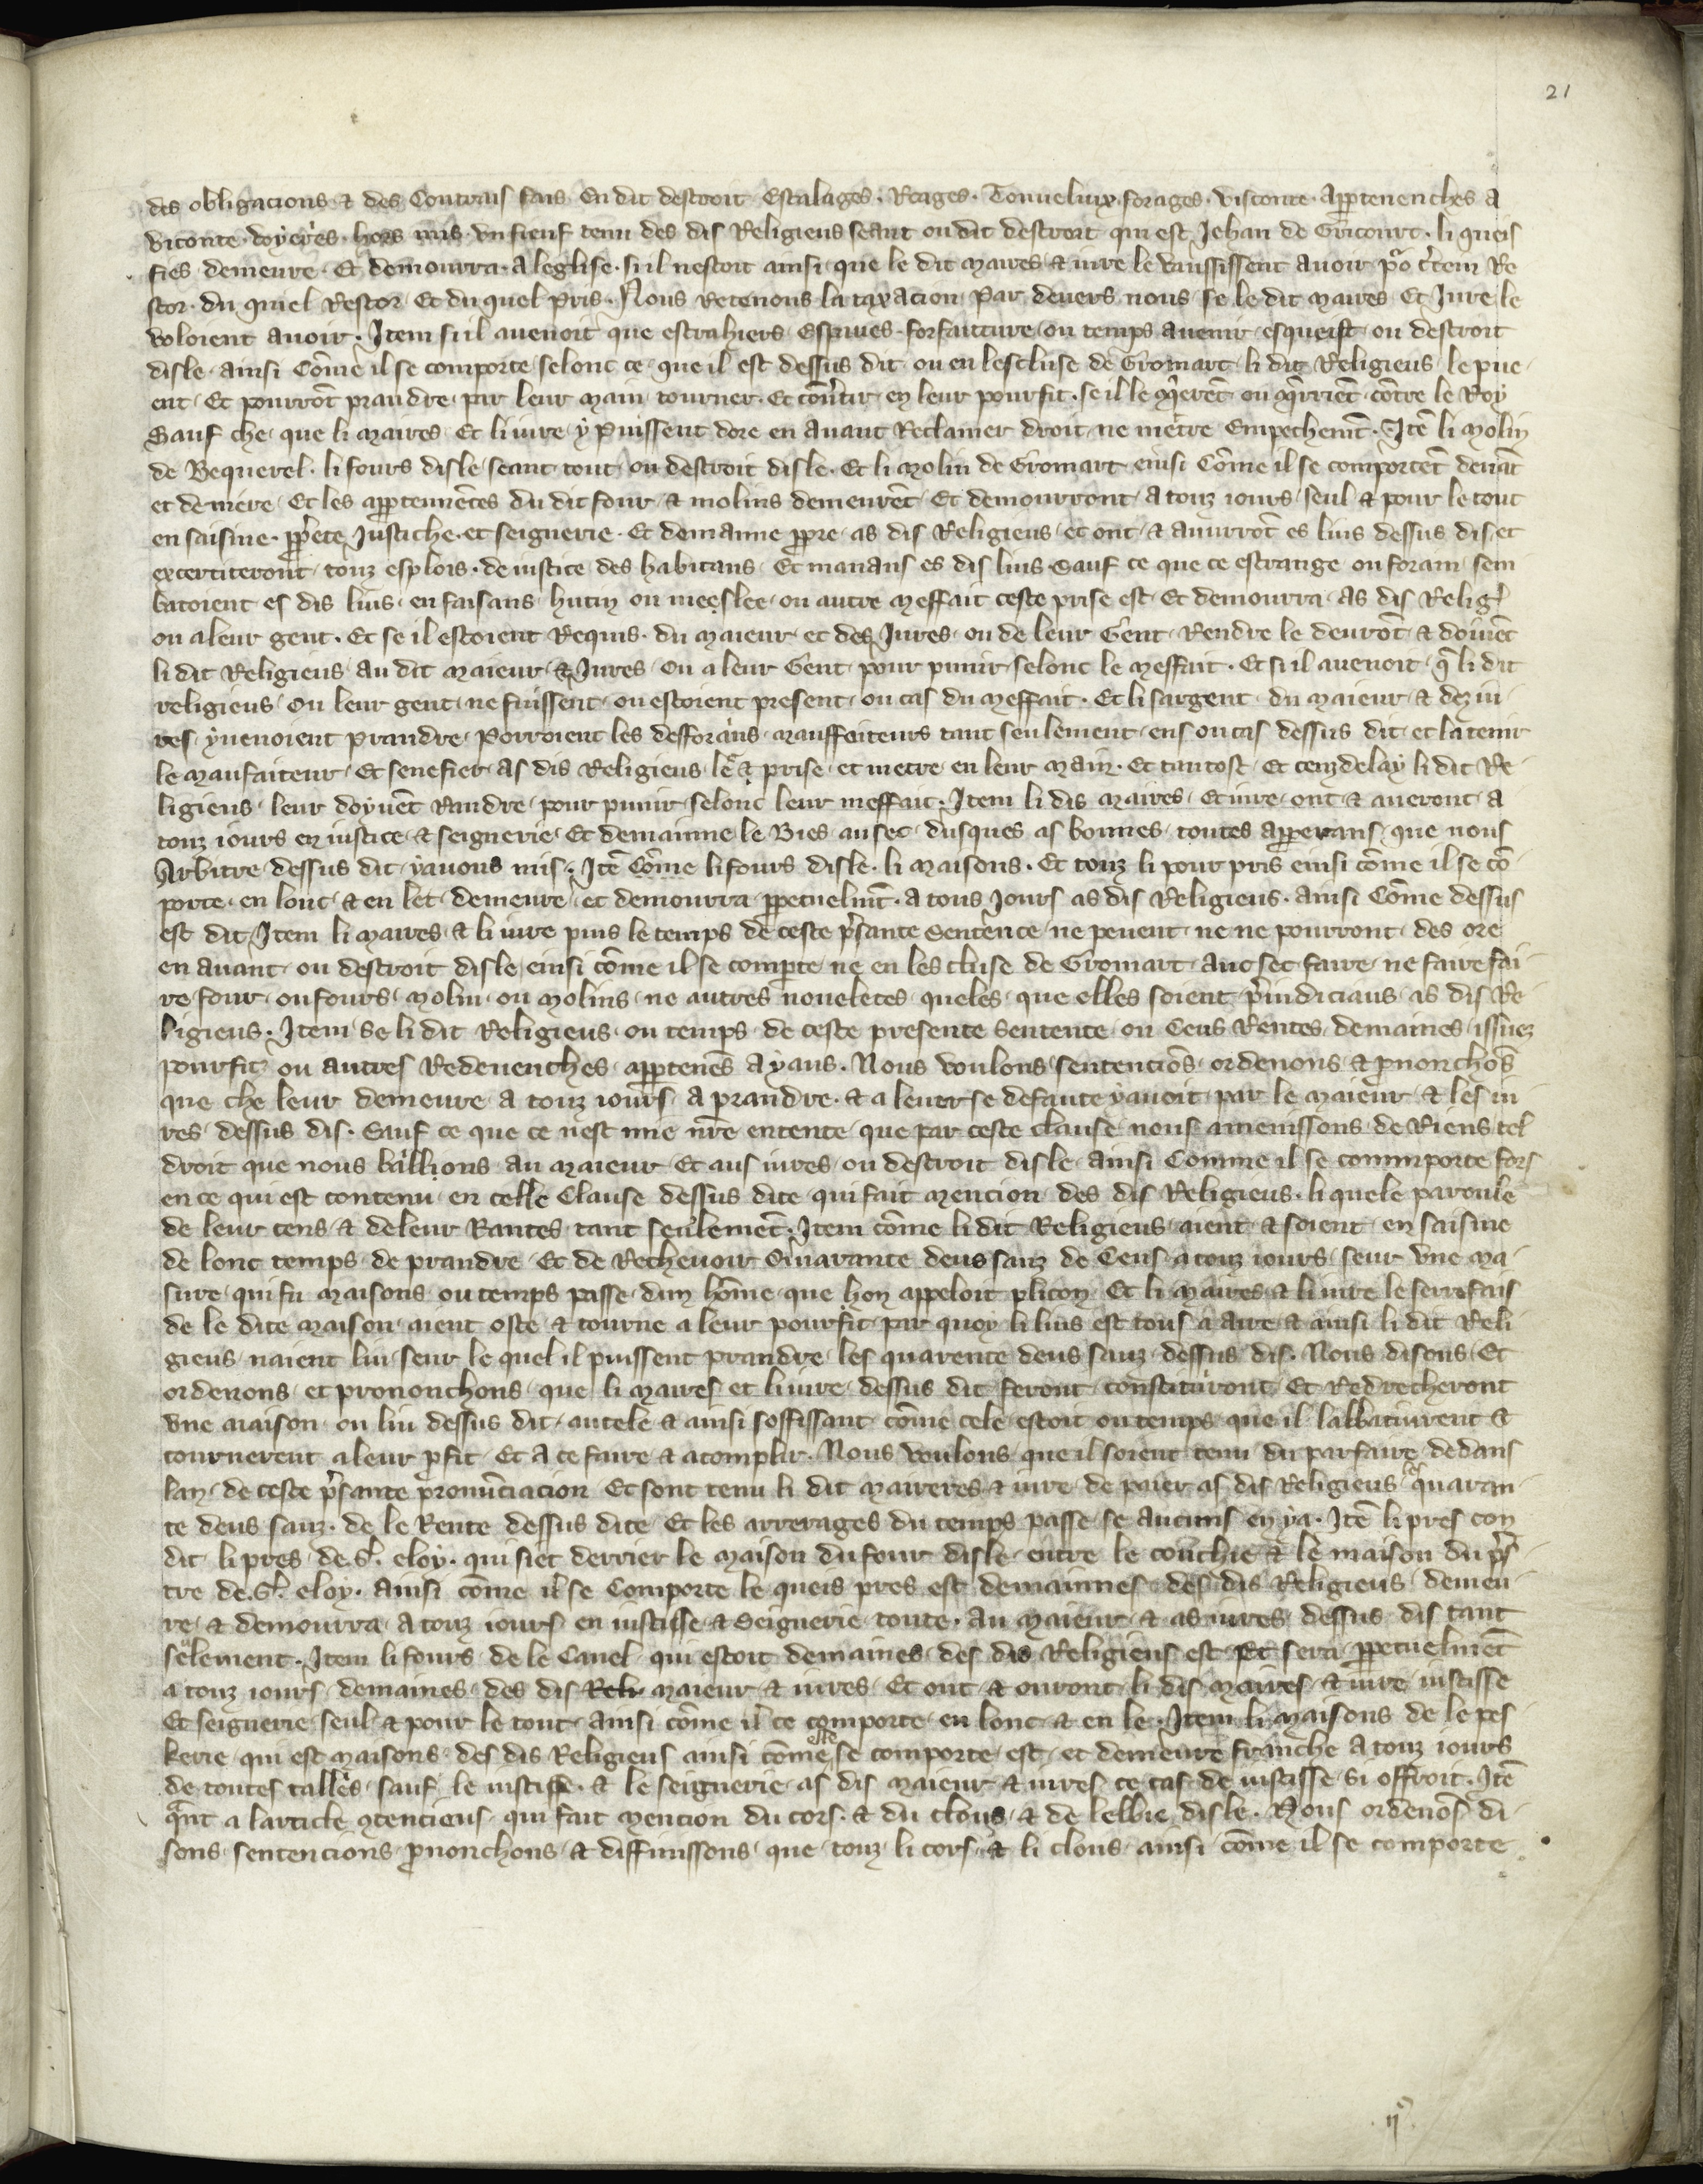 21
des obligacions & des Contrais fais En dit destroit Estalages . Rages . Tonueliux . forages . visconte . appertenenches a
viconte . voyeres . hors mis vn fieuf tenu des dis Religieus seant ou dit destroit qui est Jehan de Gricourt . li queis
fies demeure . Et demourra . A leglise . si il nestoit ainsi que le dit Maires & iure le vausissent auoir p̃ c̃tein Re
stor . du quiel Restor Et du quel pris . Nous Retenons la taxacion Par deuers nous se le dit Maires Et Jure le
voloient auoir . Item si il auenoit que estrahiers Espaues forfaitture ou temps auenir esqueist ou destroit
disle ainsi Cõme il se comporte selonc ce que il est dessus dit ou en lescluse de Gromart li dit Religieus le pue
ent Et pourrõt prandre par leur main tourner . Et cõũtir en leur pourfit . se il le q̃rerẽt ou q̃rriẽt cõtre le Roy
Sauf che que li Maires Et li iure y Puissent dore en auant Reclamer droit ne metre Empechemẽt . Itẽ li Molin
de Bequerel . li fours disle seant tout ou destroit disle . Et li Molin de Gromart einsi Cõme il se comportẽt deuãt
et derriere Et les appertenñces du dit four & molins demeurẽt Et demourront A touz iours seul & pour le tout
en saisine . pp̃ete Justiche . et seignerie . Et demanne ppre as dis Religieus et ont & auurrõt es lius dessus dis et
excertiteront touz esplois . de iustice des habitans Et manans es dis lius Sauf ce que ce estrange ou forain sem
batoient es dis lius en faisans hutin ou meeslee ou autre Meffait ceste prise est Et demourra As dis Relig̃
ou a leur gent . Et se il estoient Requis . du Maieur et des Jures ou de leur Gent Rendre le deurõt & doiuẽt
li dit Religieus au dit Maieur & Jures Ou a leur Gent pour punir selonc le Meffait . Et si il auenoit q̃ li dit
religieus Ou leur gent ne fuissent ou estoient present ou cas du Meffait . Et li sargent du Maieur & dez iu
res y uenoient Prandre Porroient les desforains Mauffaiteurs tant seulement ens ou cas dessus dit et la tenir
le Maufaiteur Et senefier As dis Religieus le & prise et metre en leur Main . Et tantost Et cenz delay li dit Re
ligieus leur doyuẽt Randre pour punir selonc leur meffait . Item li dis Maires Et iure ont & aueront A
touz iours en iustice & seignerie Et demainne le Bies au sec dusques as bonnes toutes apperans que nous
Arbitre dessus dit y auons mis . Itẽ Cõme li fours disle . li Maisons . Et touz li pour pris einsi cõme il se cõ
porte en lonc & en let demeure et demourra ppetuelmẽt . a tous Jours as dis Religieus . ainsi Cõme dessus
est dit Item li Maires & li iure puis le temps de ceste p̃sante Sentence ne peuent ne ne pourront des ore
en auant ou destroit disle einsi cõme il se comporte ne en lescluse de Gromart Au sec faire ne faire fai
re four ou fours Molin ou Molins ne autres noueletes queles que elles soient p̃iudiciaus as dis Re
ligieus . Item Se li dit Religieus ou temps de ceste presente Sentente ou Cens Rentes demaines issuez
pourfit ou autres Redeuenches appertenẽs Ayans . Nous voulons sentenciõs ordenons & p̃nonchõs
que che leur demeure A touz iours A prandre . & a leuer se defaute yauoit par le Maieur & les iu
res dessus dis . Sauf ce que ce nest mie nr̃e entente que par ceste clause nous amenissons de Riens tel
droit que nous baillions au Maieur Et aus iures ou destroit disle Ainsi Comme il se commporte fors
en ce qui est contenu en celle Clause dessus dite qui fait Mencion des dis Religieus . li quele paroule
de leur cens & de leur Rantes tant seulemẽt . Item cõme li dit Religieus aient & soient en saisine
de lonc temps de prandre Et de Recheuoir Quarante deus sauz de Cens a touz iours seur vne Ma
sure qui fu Maisons ou temps passe dun hõme que hon appeloit plicon Et li Maires & li iure le serrefais
de le dite Maison aient oste & tourne a leur pourfit par quoy li lius est tous a Aire & ainsi li dit Reli
gieus naient liu seur le quel il puissent prandre les quarente deus sauz dessus dis . Nous disons Et
ordenons et prononchons que li Maires et li iure dessus dit feront constituront Et Redrecheront
vne Maison ou liu dessus dit autele & ainsi soffissant cõme cele estoit ou temps que il labbatuirent &
tournerent a leur p̃fit Et A ce faire & acomplir . Nous voulons que il soient tenu du parfaire dedans
lan de ceste p̃sante pronũciacion Et sont tenu li dit Maireres & iure de paier as dis Religieus les quaran
te deus sauz . de le Rente dessus dite Et les arrerages du temps passe se Aucuns en ya . Itẽ li pres con
dit li pres de St̃ eloy . qui siet derrier le Maison du four disle entre le couchie & le maison du p̃s
tre de St̃ eloy . Ainsi cõme il se Comporte le queis pres est demainnes des dis Religieus demeu
re & demourra A touz iours en iustisse & Seignerie toute . Au Maieur & as iures dessus dis tant
selement . Item li fours de le Canel qui estoit demaines des dis Religieus est Et sera ppetuelmẽt
a touz iours demaines des dis Reli Maieur & iures Et ont & ouront li dis Maires & iure iustisse
Et seignerie seul & pour le tout Ainsi cõme il ce comporte en lonc & en le . Item li Maisons de le pes
kerie qui est Maisons des dis Religieus ainsi cõme elle se comporte est et demeure franche A touz iours
de toutes talles sauf le iustisse & le seignerie as dis Maieur & iures ce cas de iustisse si offroit . Itẽ
q̃nt a larticle 9tencieus qui fait Mencion du cors . & du clous & de lellbie disle . Nous ordenõs di
sons sentencions p̃nonchons & diffinissons que touz li cors & li clous ainsi cõme il se comporte